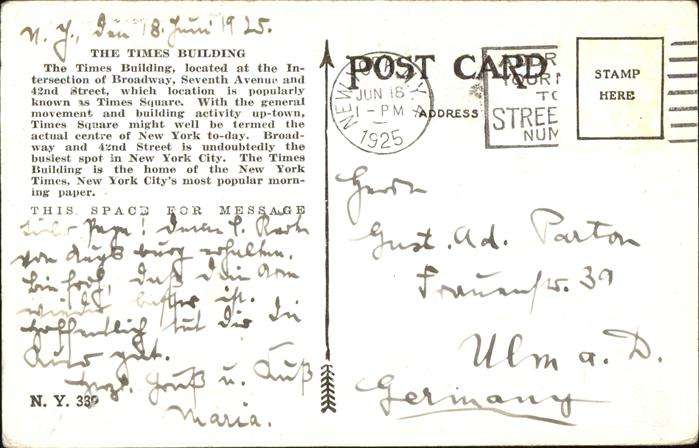 N. Y., den 18. Juni 1925.
THE TIMES BUILDING
The Times Building, located at the In-
tersection of Broadway, Seventh Avenue and
42nd Street, which location is popularly
known as Times Square. With the general
movement and building activity up-town,
Times Square might well be termed the
actual centre of New York to-day. Broad-
way and 42nd Street is undoubtedly the
busiest spot in New York City. The Times
Building is the home of the New York
Times, New York City's most popular morn-
ing paper.
THIS SPACE FOR MESSAGE
Lieber Papa! Deine l. Karte
von Augsburg erhalten.
Bin froh, daß dein Arm
wieder besser ist.
Hoffentlich tut dir die
Kur gut.
Herzl. Gruß u. Kuß
Maria.
N. Y. 339
POST CARD
ADDRESS
STAMP
HERE
NEW YORK, N.Y.
JUN 18
1-PM
1925
YOUR
TO
STREE
NUM
Herrn
Gust. Ad. Parton
Frauenstr. 39
Ulm a. D.
Germany